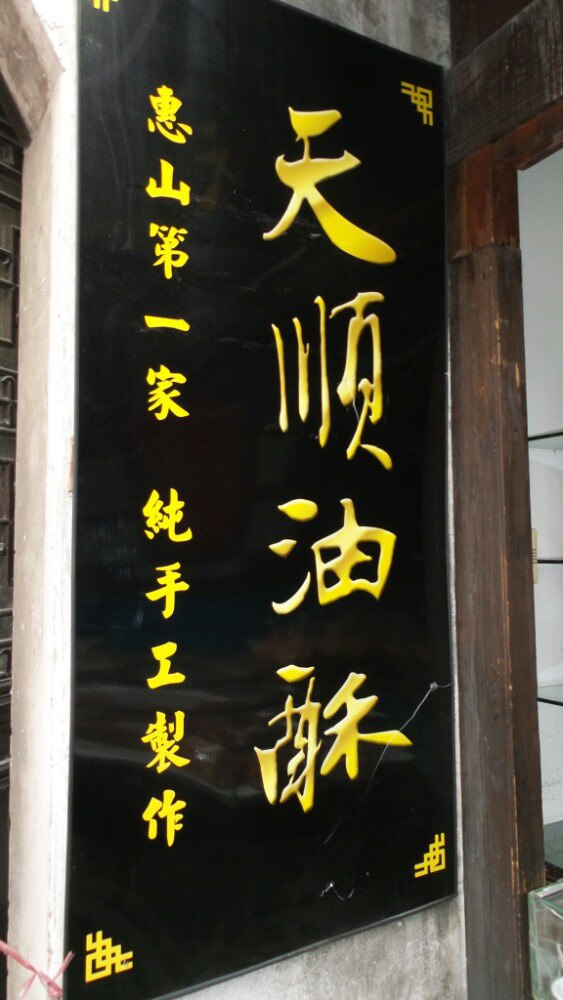 天順油酥
惠山第一家 純手工製作